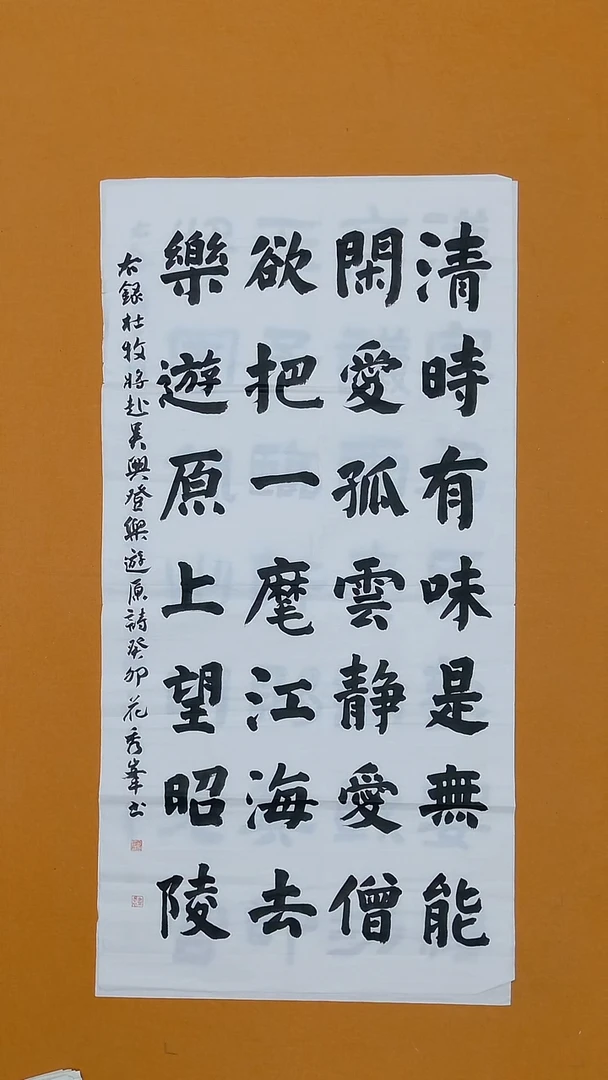 清時有味是無能
閑愛孤雲静愛僧
欲把一麾江海去
樂遊原上望昭陵
右録杜牧將赴吴興登樂遊原詩癸卯花秀峯书